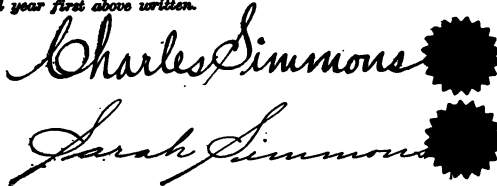 year first above written.
Charles Simmons
Sarah Simmons